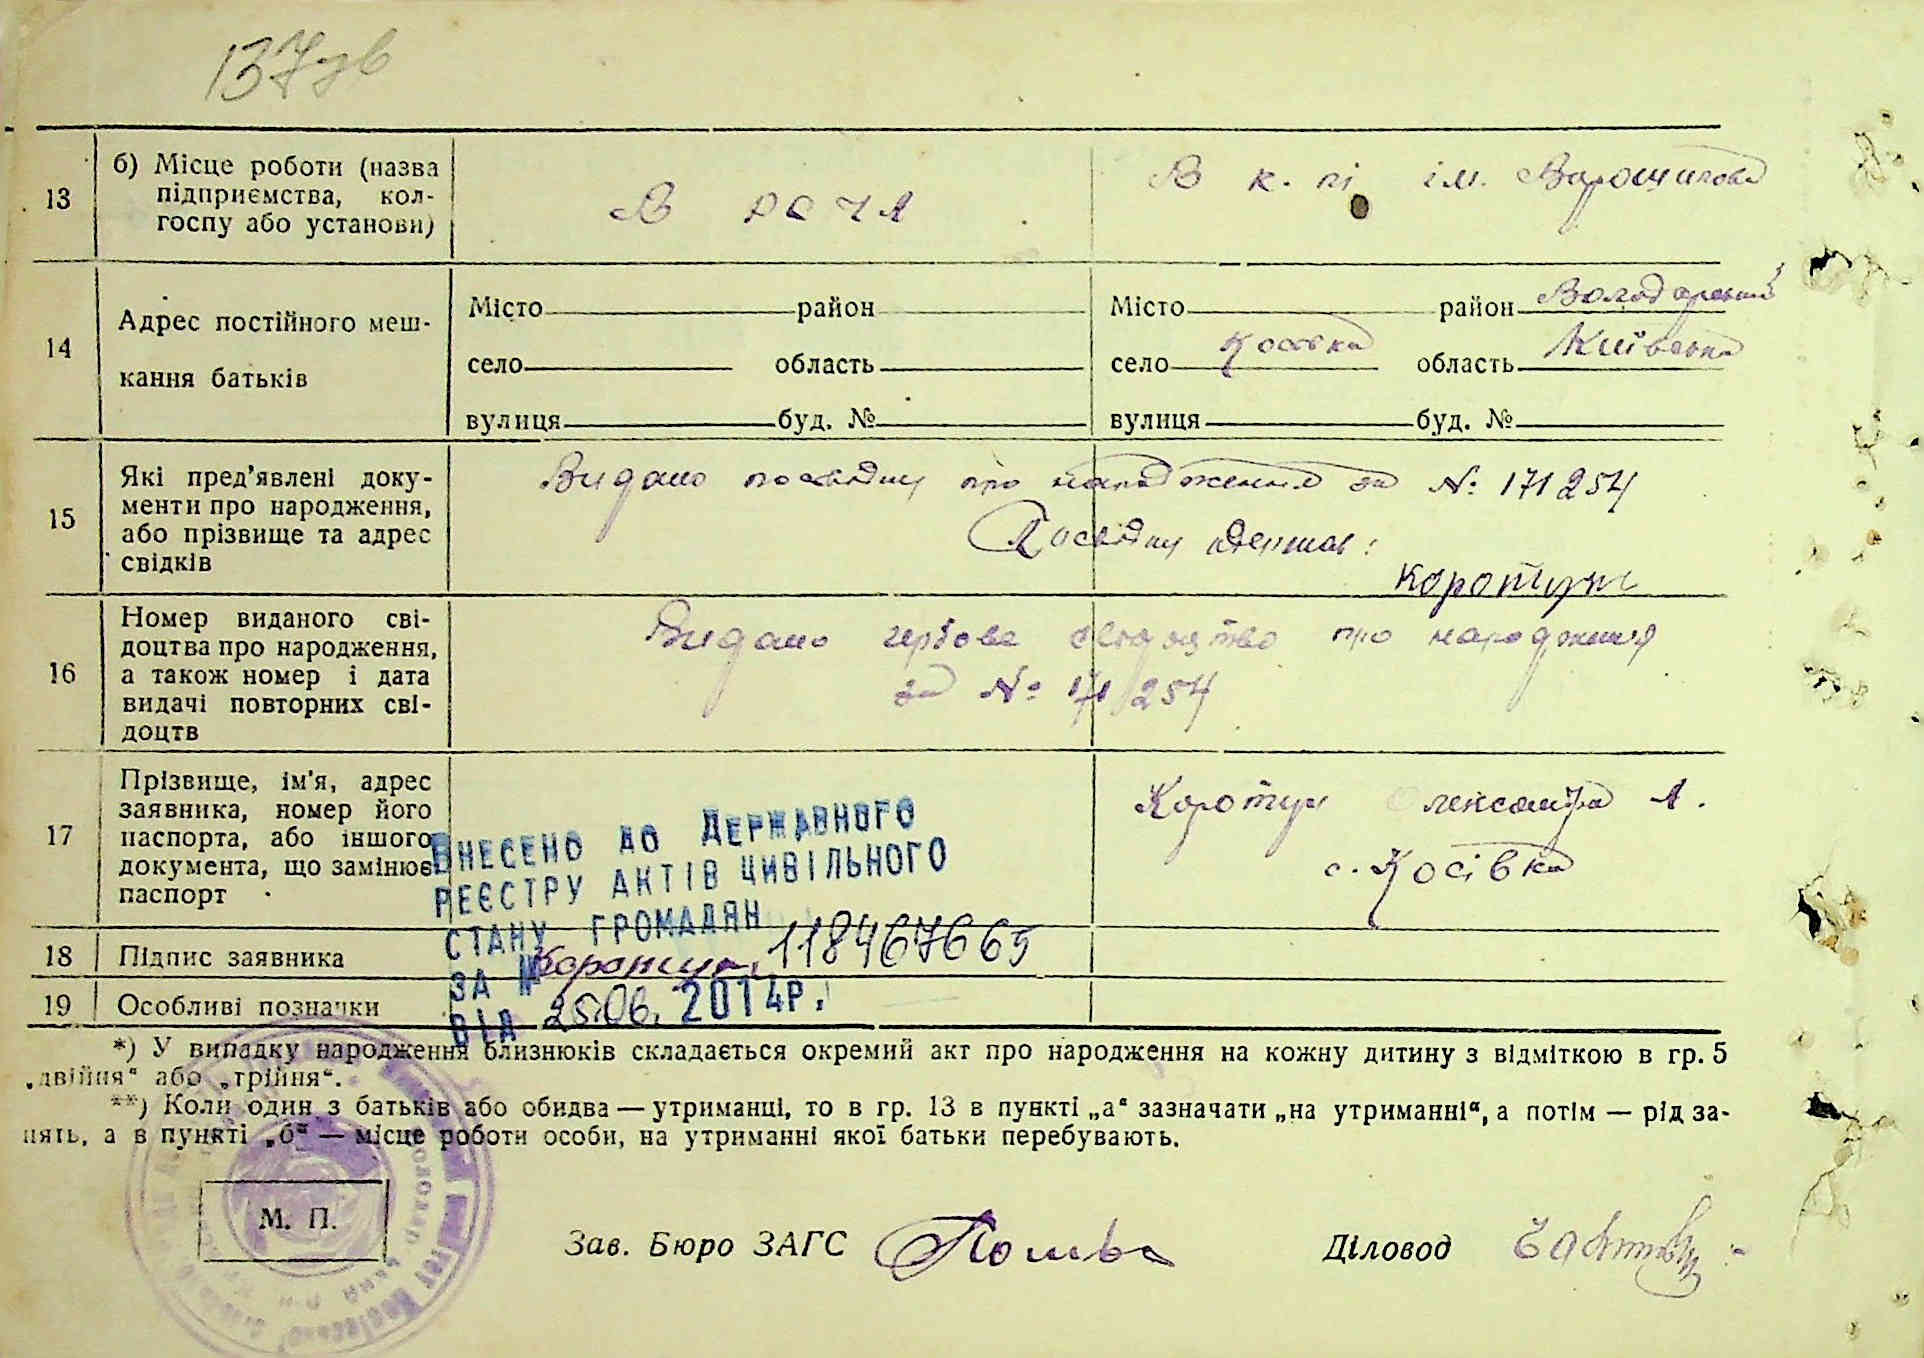 137зв
13
б) Місце роботи (назва
підприємства, кол-
госпу або установи)
В РСЧА
В к. пі ім. Ворошилова
14
Адрес постійного меш-
кання батьків
Місто район
село область
вулиця буд. №
Місто район Володарський
село Косівка область Київська
вулиця буд. №
15
Які пред'явлені доку-
менти про народження,
або прізвище та адрес
свідків
Видано посвідку про народження за № 171254
Посвідку держав:
Коротун
16
Номер виданого сві-
доцтва про народження,
а також номер і дата
видачі повторних сві-
доцтв
Видано гербове свідоцтво про народження
за № 171254
17
Прізвище, ім'я, адрес
заявника, номер його
паспорта, або іншого
документа, що замінює
паспорт
Коротун Олександра А.
с. Косівка
ВНЕСЕНО ДО ДЕРЖАВНОГО
РЕЄСТРУ АКТІВ ЦИВІЛЬНОГО
СТАНУ ГРОМАДЯН
ЗА № 118467665
ВІД 25.06. 2014Р.
18 Підпис заявника Коротун
19 Особливі позначки
*) У випадку народження близнюків складається окремий акт про народження на кожну дитину з відміткою в гр. 5
„двійня“ або „трійня“.
**) Коли один з батьків або обидва — утриманці, то в гр. 13 в пункті „а“ зазначати „на утриманні“, а потім — рід за-
нять, а в пункті „б“ — місце роботи особи, на утриманні якої батьки перебувають.
М. П.
Зав. Бюро ЗАГС
Діловод